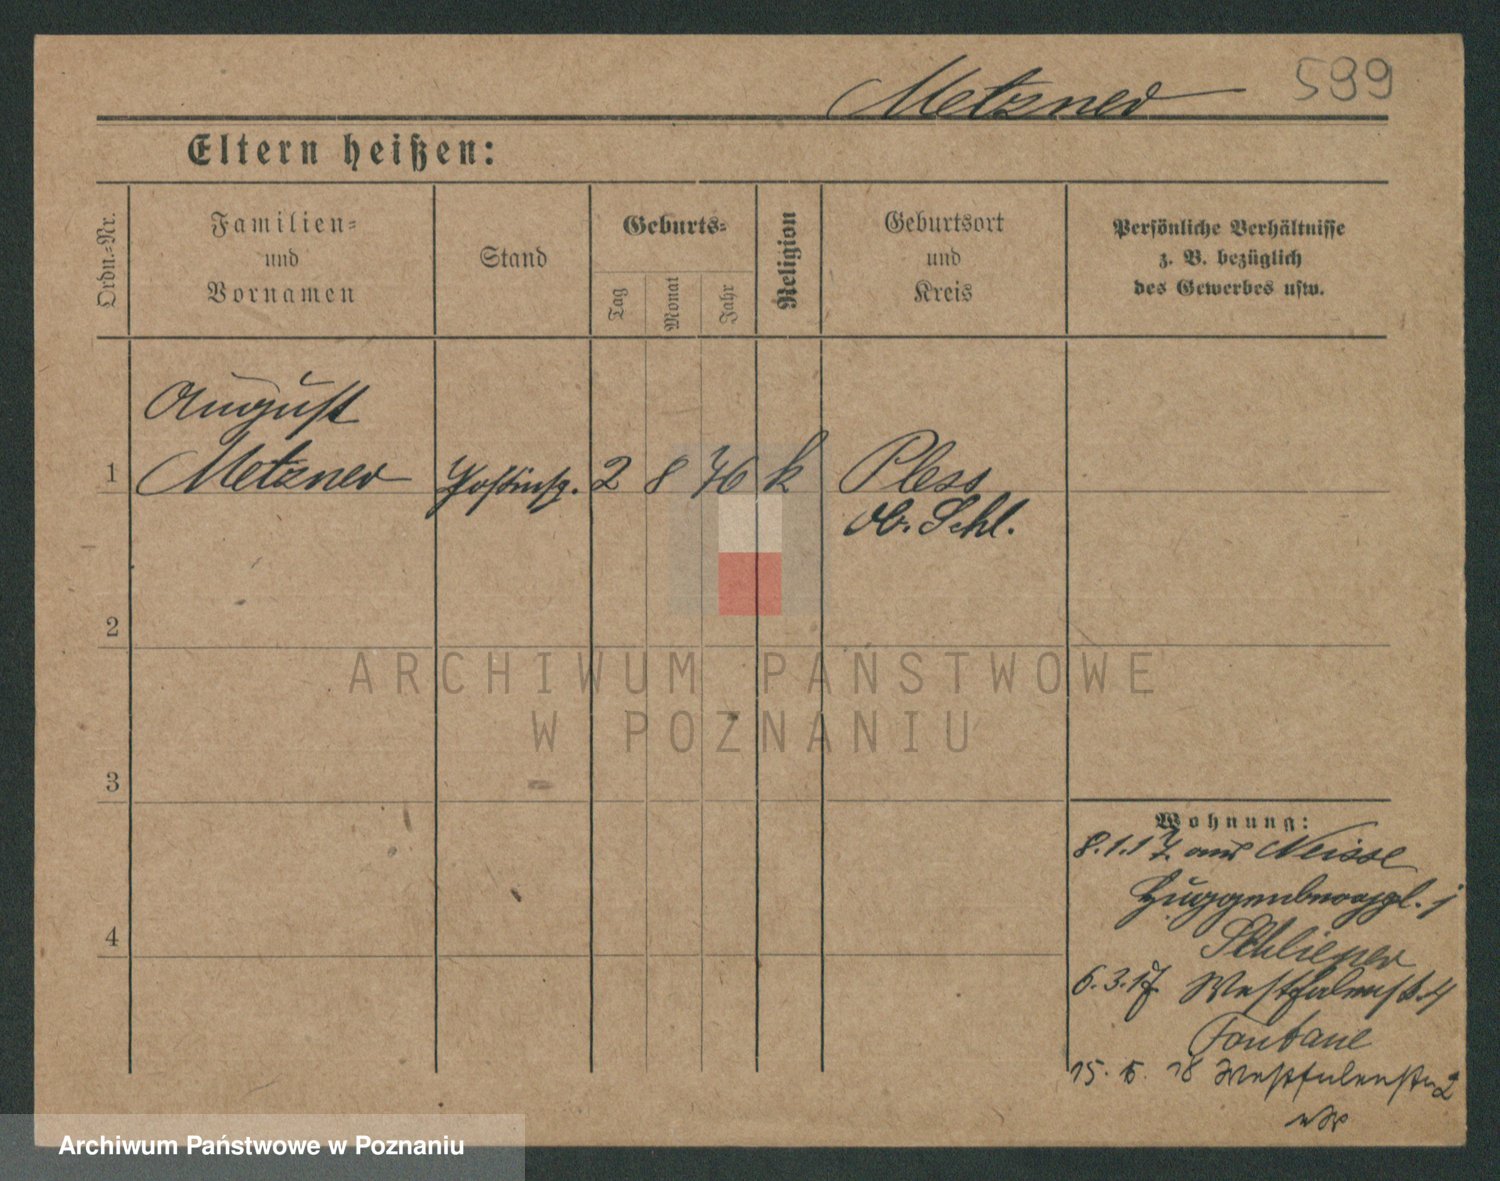 Metzner 599
Eltern heißen:
Ordn.-Nr.
Familien-
und
Vornamen
Stand
Geburts-
Tag
Monat
Jahr
Religion
Geburtsort
und
Kreis
Persönliche Verhältnisse
z. B. bezüglich
des Gewerbes usw.
August
1 Metzner Postinsp. 2 8 76 k Pless
Ob. Schl.
2
ARCHIWUM PAŃSTWOWE
W POZNANIU
3
Wohnung:
8.1.17 aus Neisse
4
Schlieper
6.3.17 Westfalenst. 4
Fontane
15. 5. 18 Westfalenstr 2
Archiwum Państwowe w Poznaniu